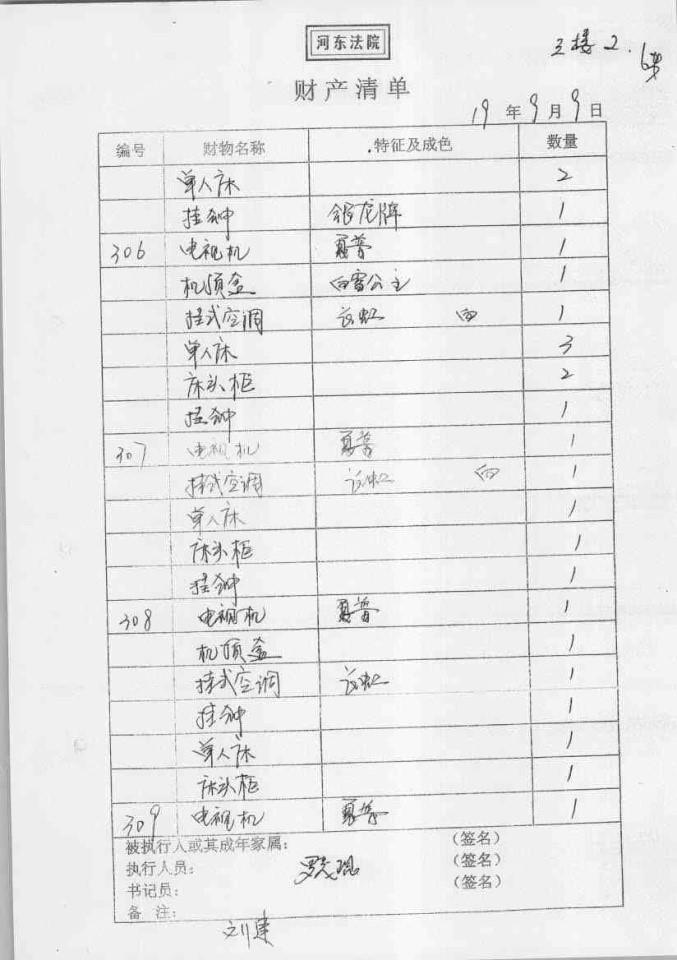 河东法院
三楼 2.
财产清单
19 年 9 月 9 日
编号 财物名称 特征及成色 数量
单人床 2
挂钟 银龙牌 1
306 电视机 夏普 1
机顶盒 白雪公主 1
挂式空调 长虹 白 1
单人床 3
床头柜 2
挂钟 1
307 电视机 夏普 1
挂式空调 长虹 白 1
单人床 1
床头柜 1
挂钟 1
308 电视机 夏普 1
机顶盒 1
挂式空调 长虹 1
挂钟 1
单人床 1
床头柜 1
309 电视机 夏普 1
被执行人或其成年家属: (签名)
执行人员: (签名)
书记员: (签名)
备 注:
刘建